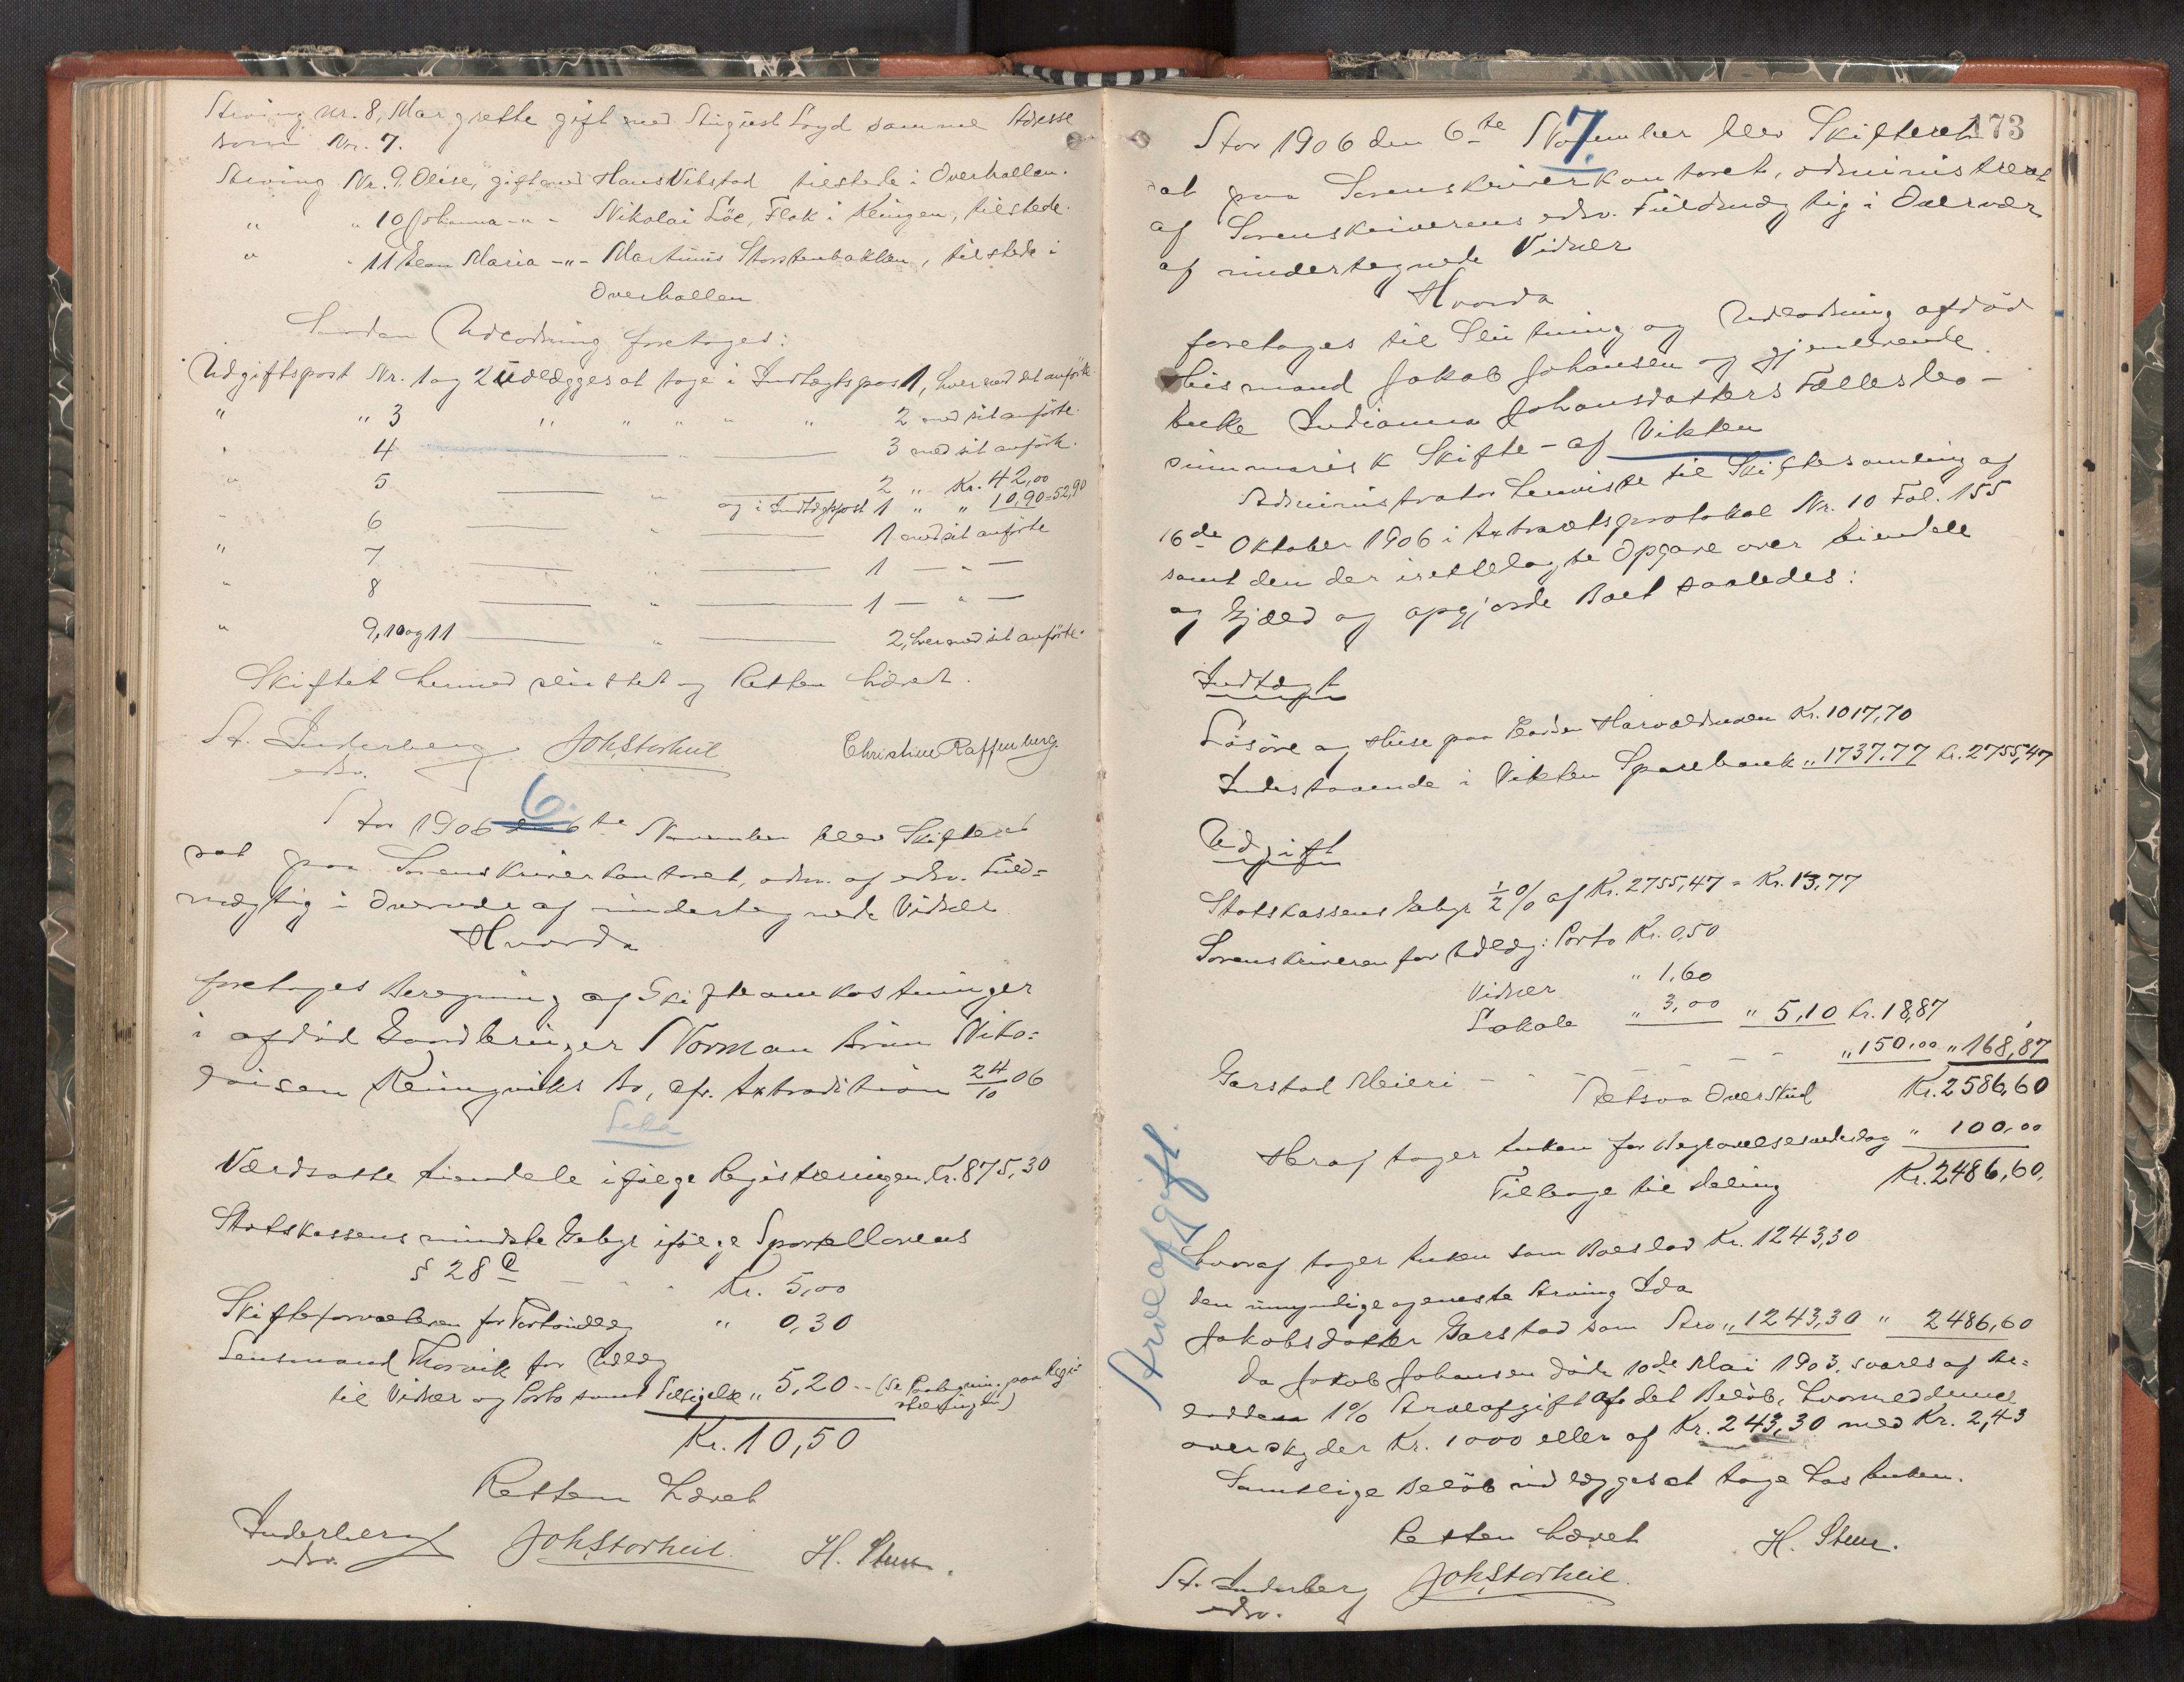 Arving Nr. 8, Margrethe gift med August Loyd samme Adresse
som Nr. 7.
Arving Nr. 9. Olise, gift med Hans Vibstad tilstede i Overhallen.
" " 10 Johanna -"- Nikolai Löe, Flak i Klingen, tilstede.
" " 11 Maria -"- Martinus Storstenbakken, tilstede i
Overhallen
Saadan Udlodning foretages:
Udgiftspost Nr. 1 og 2 Udlægges at tage i Indtægtspost 1, hver med det anförte.
" " 3 " " " " " 2 med sit anförte.
" 4 3 med sit anförte.
" 5 " 2 " Kr. 42,00
og i Indtægtspost 1 " " 10,90 = 52,90
" 6 " 1 med sit anförte
" 7 " 1 — " —
" 8 " 1 — " —
" 9, 10 og 11 " 2, hver med sit anförte.
Skiftet hermed sluttet og Retten hævet.
A. Inderberg Joh Storheil Christine Raffenberg.
edsv.
6.
Aar 1906 den 6te November blev Skifteret
sat paa Sorenskriverkontoret, adm. af edsv. Fuld=
mægtig i Overvær af undertegnede Vidner
Hvorda
foretages Beregning af Skifteomkostninger
i afdöd Gaardbruger Norman Brun Niko=
laisen Klingviks Bo, cfr. Extradition 24/10 06
Leka
Værdsatte Eiendele ifölge Registreringen Kr. 875,30
Statskassens mindste Gebyr ifölge Sportellovens
§ 28 c - - - Kr. 5,00
Skifteforvalteren for Portoudlæg " 0,30
Lensmand Thorvik for Udlæg
til Vidner og Porto samt Tilsigelse " 5,20 -- (se Paategning paa Regi=
streringen)
Kr. 10,50
Retten hævet
Inderberg Joh Storheil. H. Stene.
edsv.
173
7.
Aar 1906 den 6te November blev Skifteret
sat paa Sorenskriverkontoret, administreret
af Sorenskriverens edsv. Fuldmægtig i Overvær
af undertegnede Vidner
Hvorda
foretages til Slutning og Udlodning afdöd
Husmand Jakob Johansen og gjenlevende
Enke Indianna Johansdatters Fællesbo -
summarisk Skifte - af Vikten
Administrator henviste til Skiftesamling af
16de Oktober 1906 i Extraretsprotokol Nr. 10 Fol. 155
samt den der irettelagte Opgave over Eiendele
og Gjæld og opgjorde Boet saaledes:
Indtægt
Lösöre og Huse paa Marvaldnesen Kr. 1017,70
Indestaaende i Vikten Sparebank " 1737,77 Kr. 2755,47
Udgift
Statskassens Gebyr 1/2 % af Kr. 2755,47 = Kr. 13,77
Sorenskriveren for Udlæg: Porto Kr. 0,50
Vidner " 1,60
Lokale " 3,00 " 5,10 Kr. 18,87
Garstad Meieri - - - - - - " 150,00 " 168,87
Netsaa Overskud Kr. 2586,60
Heraf tager Enken for Begravelsesudlæg " 100,00
Tilbage til Deling Kr. 2486,60,
hvoraf tager Enken som Boeslod Kr. 1243,30
den umyndige og eneste Arving Ida
Jakobsdatter Garstad som Arv " 1243,30 " 2486,60
Da Jakob Johansen döde 10de Mai 1903, svares af Ar=
velodden 1% Arveafgift af det Belöb, hvormed denne
overskyder Kr. 1000 eller af Kr. 243,30 med Kr. 2,43
Samtlige Belöb udlægges at tage hos Enken.
Retten hævet H. Stene.
A. Inderberg Joh Storheil.
edsv.
Arveafgift.